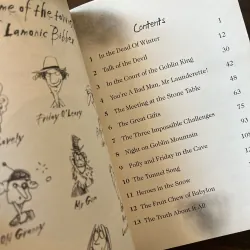 me of the town
Lamonic Bibber
Friday O'Leary
Mr Gum
Contents
1 In the Dead Of Winter 1
2 Talk of the Devil 12
3 In the Court of the Goblin King 30
4 You're A Bad Man, Mr Launderette! 42
5 The Meeting at the Stone Table 48
6 The Great Gifts 63
7 The Three Impossible Challenges 75
8 Night on Goblin Mountain 93
9 Polly and Friday in the Cave
10 The Tunnel Song
11 Heroes in the Snow
12 The Fruit Chew of Babylon
13 The Truth About It All